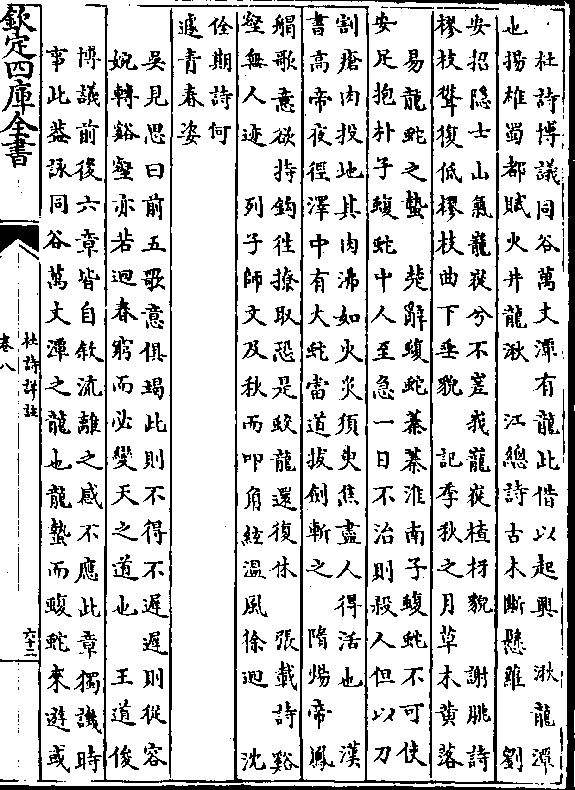 杜詩博議同谷萬丈潭有龍此借以起興　湫龍潭
也揚雄蜀都賦火井龍湫　江總詩古木斷懸蘿　劉
安招隠士山氣巃嵸兮石嵳峩巃嵸楂枒貌　謝朓詩
樛枝聳復低樛枝曲下垂貌　記季秋之月草木黄落
易龍蛇之蟄　楚辭蝮蛇蓁蓁淮南子蝮蛇不可使
安足抱朴子蝮蛇中人至急一日不治則殺人但以刀
割瘡肉投地其肉沸如火炙須臾焦盡人得活也　漢
書高帝夜徑澤中有大蛇當道拔劍斬之　隋煬帝鳳
艒歌意欲持鈎往撩取恐是蛟龍還復休　張載詩谿
壑無人迹　列子師文及秋而叩角絃溫風徐迴　沈
佺期詩何
遽青春姿
吳見思曰前五歌意俱竭此則不得不遲遲則從容
婉轉谿壑亦若迴春窮而必變天之道也　王道俊
博議前後六章皆自叙流離之感不應此章獨譏時
事此葢詠同谷萬丈潭之龍也龍蟄而蝮蛇來遊或
欽定四庫全書
杜詩詳註
卷八
六十二